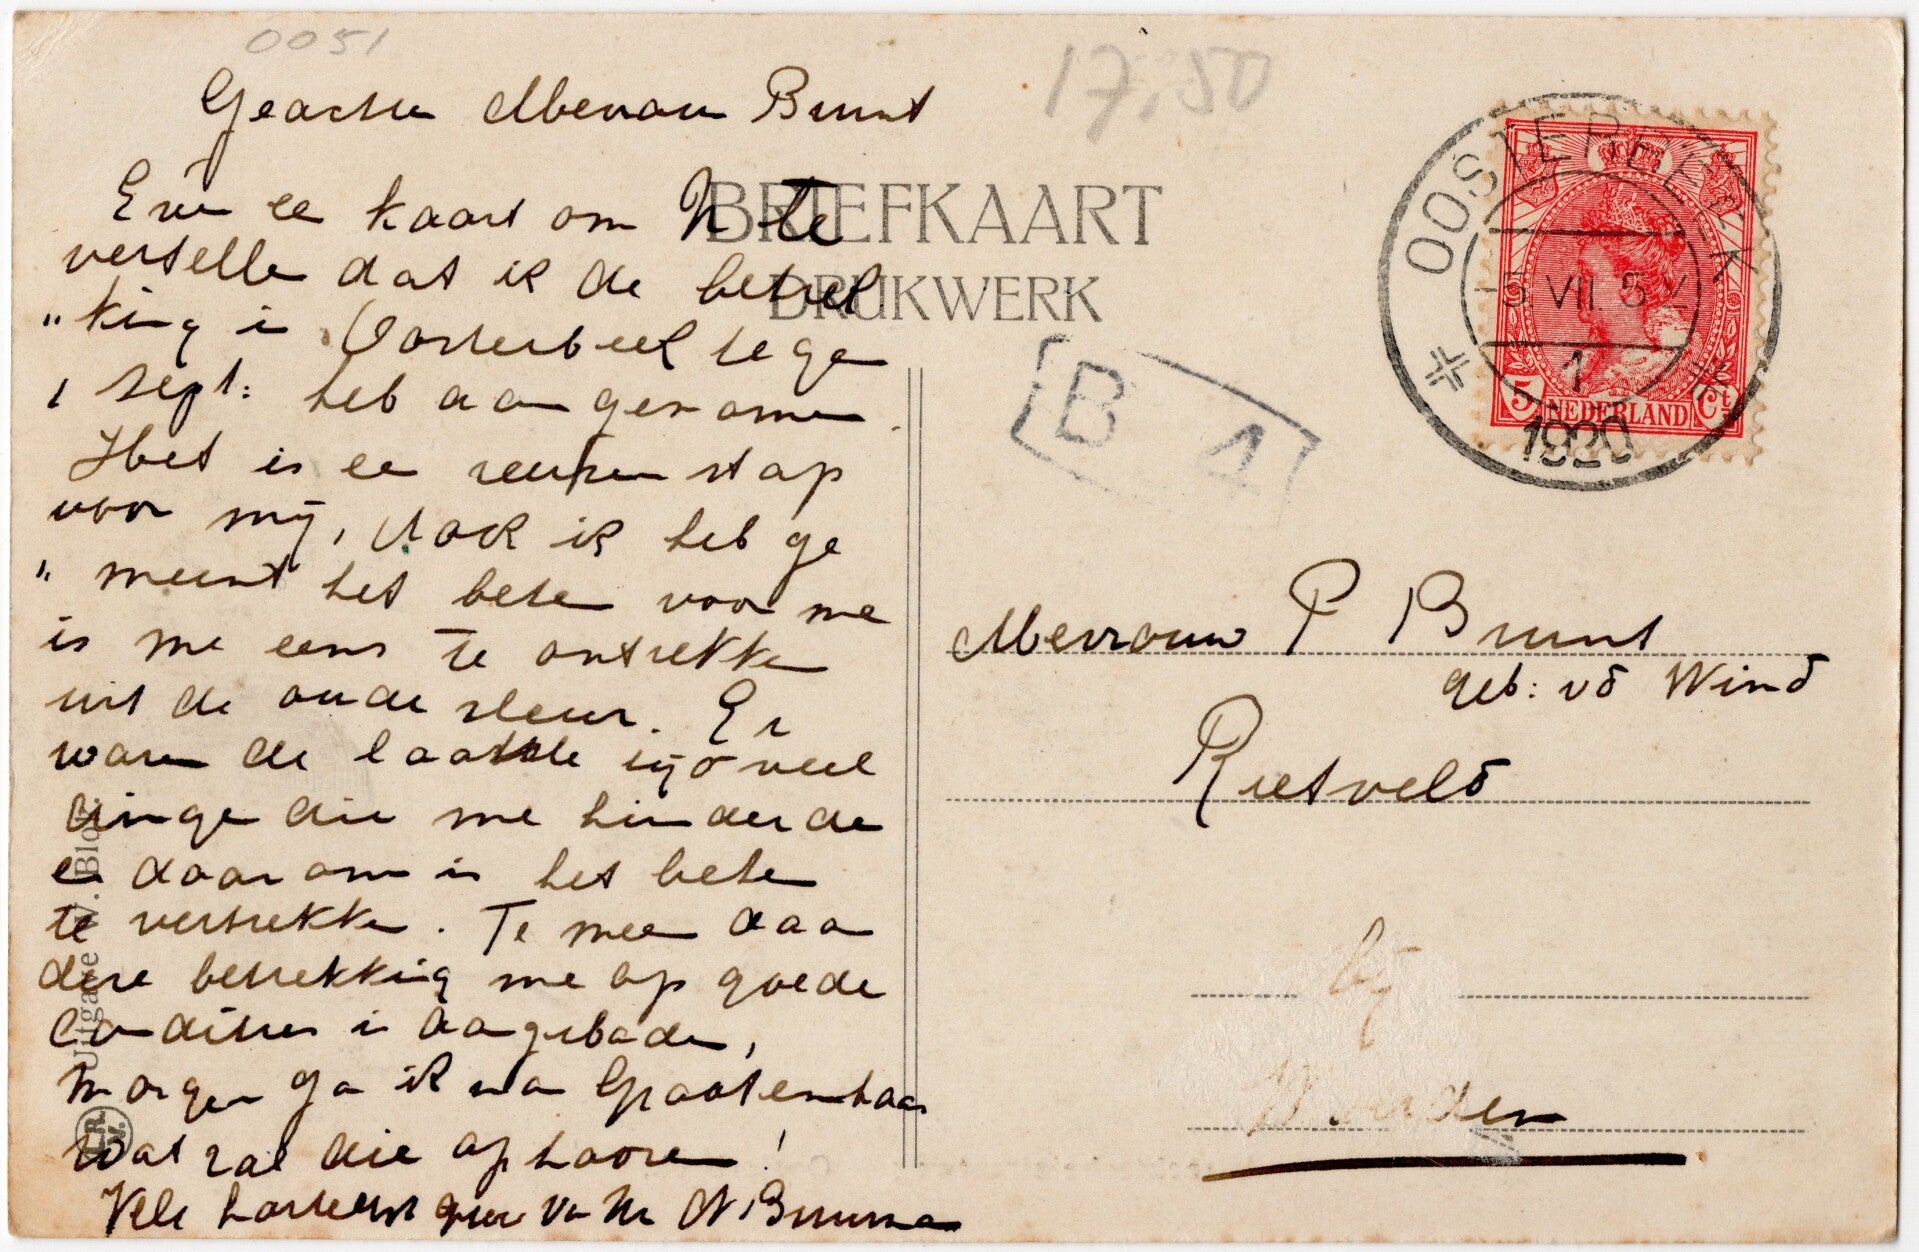 0051
17,50
Geachte Mevrouw Bunt
Even ee kaart om U te
vertelle dat ik de betrek
"king i Oosterbeek tege
1 Sept: heb aangenomen.
Het is ee reuzen stap
voor mij, dock ik heb ge
"meent het beter voor me
is me eens te ontrekke
uit de oude sleur. Er
ware de laatste tijd veel
dinge die me hinderde
e daarom is het beter
te vertrekke. Te meer daar
deze betrekking me op goede
Condities is aangeboden,
Morgen ga ik na Grootenhaar
Wat zal die ophooren!
Vele hartelijke groe van Uw N Buurman
BRIEFKAART
DRUKWERK
OOSTERBEEK
-5 VII. 5 V
1
1920
5 NEDERLAND Ct
B 4
Mevrouw P Bunt
geb: vd Wind
Rietveld
bij
Woerden
Uitgave J. Blo